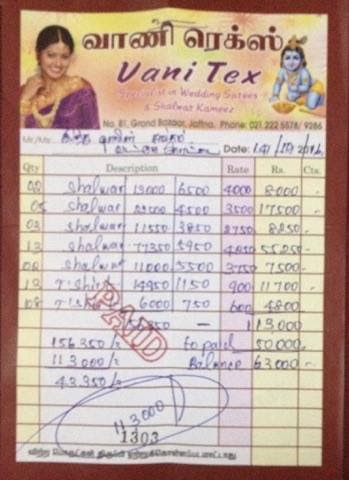 வாணி ரெக்ஸ்
Vani Tex
Specialist in Wedding Sarees
& Shalwar Kameez
No. 81, Grand Bazaar, Jaffna. Phone: 021 222 5578 / 9286
Mr/Mrs
Date:
Qty Description Rate Rs. Cts.
02 Shalwar 13000 6500 4000 8000
05 Shalwar 4500 3500 17500
03 Shalwar 11550 3850 2750 8250
13 Shalwar 77350 5950 4250 55250
02 Shalwar 11000 5500 3750 7500
13 T.Shirt 14950 1150 900 11700
08 T.Shirt 6000 750 600 4800
156350 — 113000
156350/= to paid 50000
113000/= Balance 63000
43350/=
PAID
113000
1303
விற்ற பொருட்கள் திருப்பி ஏற்றுக்கொள்ளப்படமாட்டாது